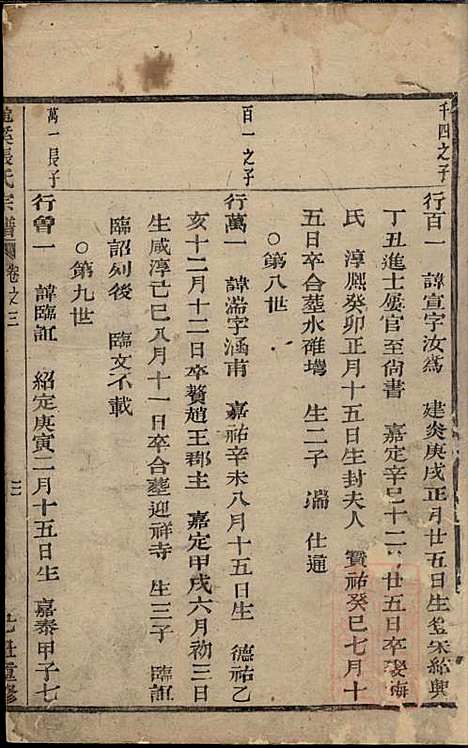 千四之子
行百一 諱宣字汝為 建炎庚戌正月廿五日生登宋紹興
丁丑進士歷官至尚書 嘉定辛巳十二 廿五日卒娶海
氏 淳熙癸卯正月十五日生封夫人 寶祐癸巳七月十
五日卒合葬水碓塆 生二子 湍 仕通
○第八世
百一之子
行萬一 諱湍字涵甫 嘉祐辛未八月十五日生 德祐乙
亥十二月十二日卒贅趙王郡主 嘉定甲戌六月初三日
生咸淳己巳八月十一日卒合葬迎祥寺 生三子 臨詎
臨詔列後 臨文不載
○第九世
萬一長子
行曾一 諱臨詎 紹定庚寅二月十五日生 嘉泰甲子七
張氏宗譜 卷之三 三 重修